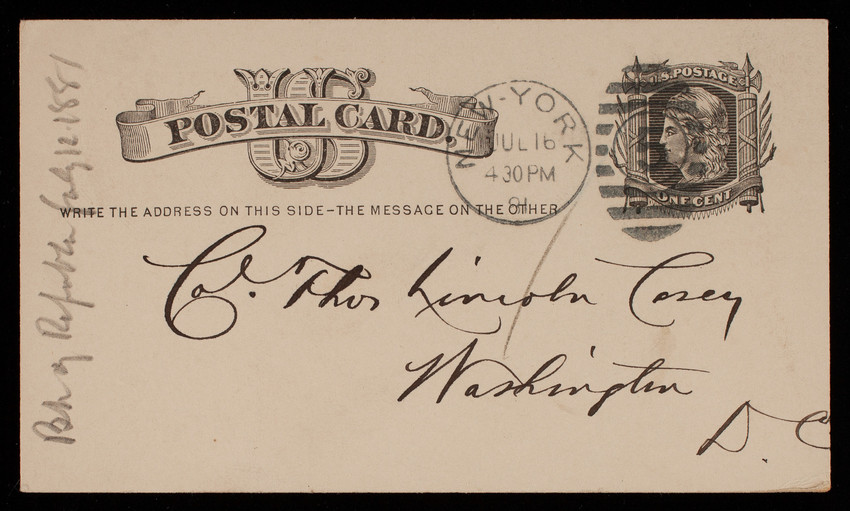 US
POSTAL CARD.
NEW-YORK
JUL 16
430 PM
81
U.S. POSTAGE
ONE CENT
WRITE THE ADDRESS ON THIS SIDE–THE MESSAGE ON THE OTHER
Col. Thos Lincoln Casey
Washington
D. C.
July 12 1881